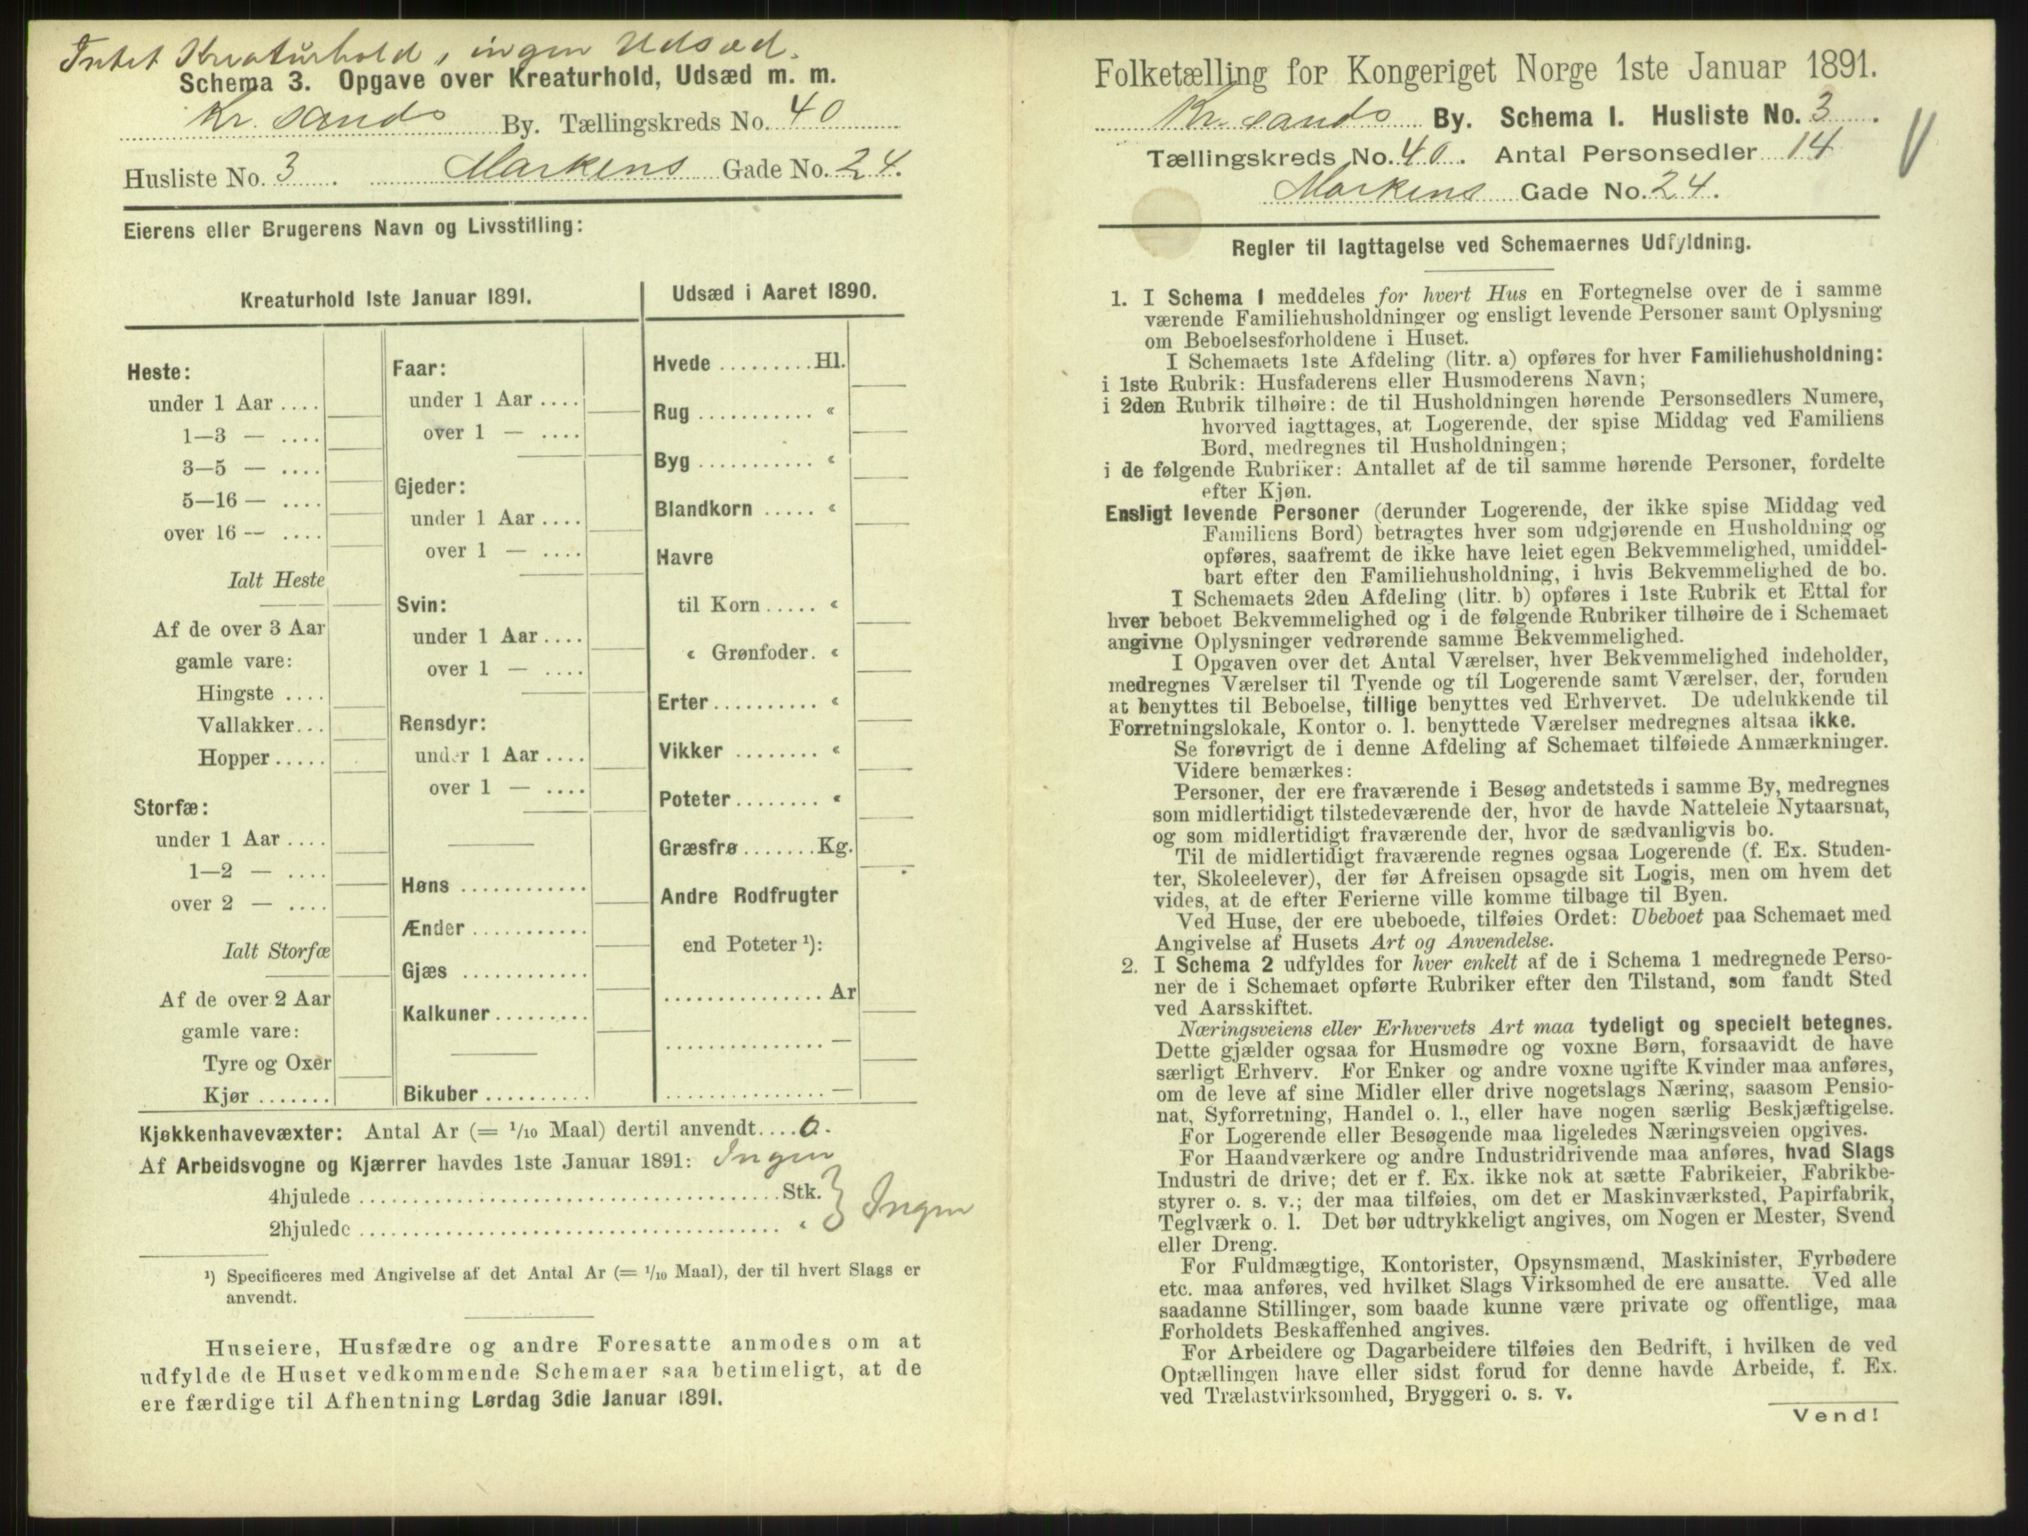 Intet Kreaturhold, ingen Udsæd.
Schema 3. Opgave over Kreaturhold, Udsæd m. m.
Kr. sands By. Tællingskreds No. 40
Husliste No. 3. Markens Gade No. 24.
Eierens eller Brugerens Navn og Livsstilling:
Kreaturhold 1ste Januar 1891.
Heste:
under 1 Aar ....
1—3 — ....
3—5 — ....
5—16 — ....
over 16 — ....
Ialt Heste
Af de over 3 Aar
gamle vare:
Hingste ....
Vallakker...
Hopper.....
Storfæ:
under 1 Aar ....
1—2 — ....
over 2 — ....
Ialt Storfæ
Af de over 2 Aar
gamle vare:
Tyre og Oxer
Kjør .......
Faar:
under 1 Aar ....
over 1 — ....
Gjeder:
under 1 Aar ....
over 1 — ....
Svin:
under 1 Aar ....
over 1 — ....
Rensdyr:
under 1 Aar ....
over 1 — ....
Høns ............
Ænder ...........
Gjæs ............
Kalkuner.........
Bikuber ..........
Udsæd i Aaret 1890.
Hvede .........Hl.
Rug ........... «
Byg ........... «
Blandkorn ..... «
Havre
til Korn ..... «
« Grønfoder. «
Erter.......... «
Vikker ........ «
Poteter........ «
Græsfrø .......Kg.
Andre Rodfrugter
end Poteter ¹):
............... Ar
............... —
............... —
Kjøkkenhavevæxter: Antal Ar (= 1/10 Maal) dertil anvendt....0.
Af Arbeidsvogne og Kjærrer havdes 1ste Januar 1891: Ingen
4hjulede ........................................Stk. } Ingen
2hjulede ........................................ «
¹) Specificeres med Angivelse af det Antal Ar (= 1/10 Maal), der til hvert Slags er
anvendt.
Huseiere, Husfædre og andre Foresatte anmodes om at
udfylde de Huset vedkommende Schemaer saa betimeligt, at de
ere færdige til Afhentning Lørdag 3die Januar 1891.
Folketælling for Kongeriget Norge 1ste Januar 1891.
Kr. sands By. Schema I. Husliste No. 3.
Tællingskreds No. 40. Antal Personsedler 14
Markens Gade No. 24.
Regler til Iagttagelse ved Schemaernes Udfyldning.
1. I Schema 1 meddeles for hvert Hus en Fortegnelse over de i samme
værende Familiehusholdninger og ensligt levende Personer samt Oplysning
om Beboelsesforholdene i Huset.
I Schemaets 1ste Afdeling (litr. a) opføres for hver Familiehusholdning:
i 1ste Rubrik: Husfaderens eller Husmoderens Navn;
i 2den Rubrik tilhøire: de til Husholdningen hørende Personsedlers Numere,
hvorved iagttages, at Logerende, der spise Middag ved Familiens
Bord, medregnes til Husholdningen;
i de følgende Rubriker: Antallet af de til samme hørende Personer, fordelte
efter Kjøn.
Ensligt levende Personer (derunder Logerende, der ikke spise Middag ved
Familiens Bord) betragtes hver som udgjørende en Husholdning og
opføres, saafremt de ikke have leiet egen Bekvemmelighed, umiddel-
bart efter den Familiehusholdning, i hvis Bekvemmelighed de bo.
I Schemaets 2den Afdeling (litr. b) opføres i 1ste Rubrik et Ettal for
hver beboet Bekvemmelighed og i de følgende Rubriker tilhøire de i Schemaet
angivne Oplysninger vedrørende samme Bekvemmelighed.
I Opgaven over det Antal Værelser, hver Bekvemmelighed indeholder,
medregnes Værelser til Tyende og til Logerende samt Værelser, der, foruden
at benyttes til Beboelse, tillige benyttes ved Erhvervet. De udelukkende til
Forretningslokale, Kontor o. l. benyttede Værelser medregnes altsaa ikke.
Se forøvrigt de i denne Afdeling af Schemaet tilføiede Anmærkninger.
Videre bemærkes:
Personer, der ere fraværende i Besøg andetsteds i samme By, medregnes
som midlertidigt tilstedeværende der, hvor de havde Natteleie Nytaarsnat,
og som midlertidigt fraværende der, hvor de sædvanligvis bo.
Til de midlertidigt fraværende regnes ogsaa Logerende (f. Ex. Studen-
ter, Skoleelever), der før Afreisen opsagde sit Logis, men om hvem det
vides, at de efter Ferierne ville komme tilbage til Byen.
Ved Huse, der ere ubeboede, tilføies Ordet: Ubeboet paa Schemaet med
Angivelse af Husets Art og Anvendelse.
2. I Schema 2 udfyldes for hver enkelt af de i Schema 1 medregnede Perso-
ner de i Schemaet opførte Rubriker efter den Tilstand, som fandt Sted
ved Aarsskiftet.
Næringsveiens eller Erhvervets Art maa tydeligt og specielt betegnes.
Dette gjælder ogsaa for Husmødre og voxne Børn, forsaavidt de have
særligt Erhverv. For Enker og andre voxne ugifte Kvinder maa anføres,
om de leve af sine Midler eller drive nogetslags Næring, saasom Pensio-
nat, Syforretning, Handel o. l., eller have nogen særlig Beskjæftigelse.
For Logerende eller Besøgende maa ligeledes Næringsveien opgives.
For Haandværkere og andre Industridrivende maa anføres, hvad Slags
Industri de drive; det er f. Ex. ikke nok at sætte Fabrikeier, Fabrikbe-
styrer o. s. v.; der maa tilføies, om det er Maskinværksted, Papirfabrik,
Teglværk o. l. Det bør udtrykkeligt angives, om Nogen er Mester, Svend
eller Dreng.
For Fuldmægtige, Kontorister, Opsynsmænd, Maskinister, Fyrbødere
etc. maa anføres, ved hvilket Slags Virksomhed de ere ansatte. Ved alle
saadanne Stillinger, som baade kunne være private og offentlige, maa
Forholdets Beskaffenhed angives.
For Arbeidere og Dagarbeidere tilføies den Bedrift, i hvilken de ved
Optællingen have eller sidst forud for denne havde Arbeide, f. Ex.
ved Trælastvirksomhed, Bryggeri o. s. v.
Vend!